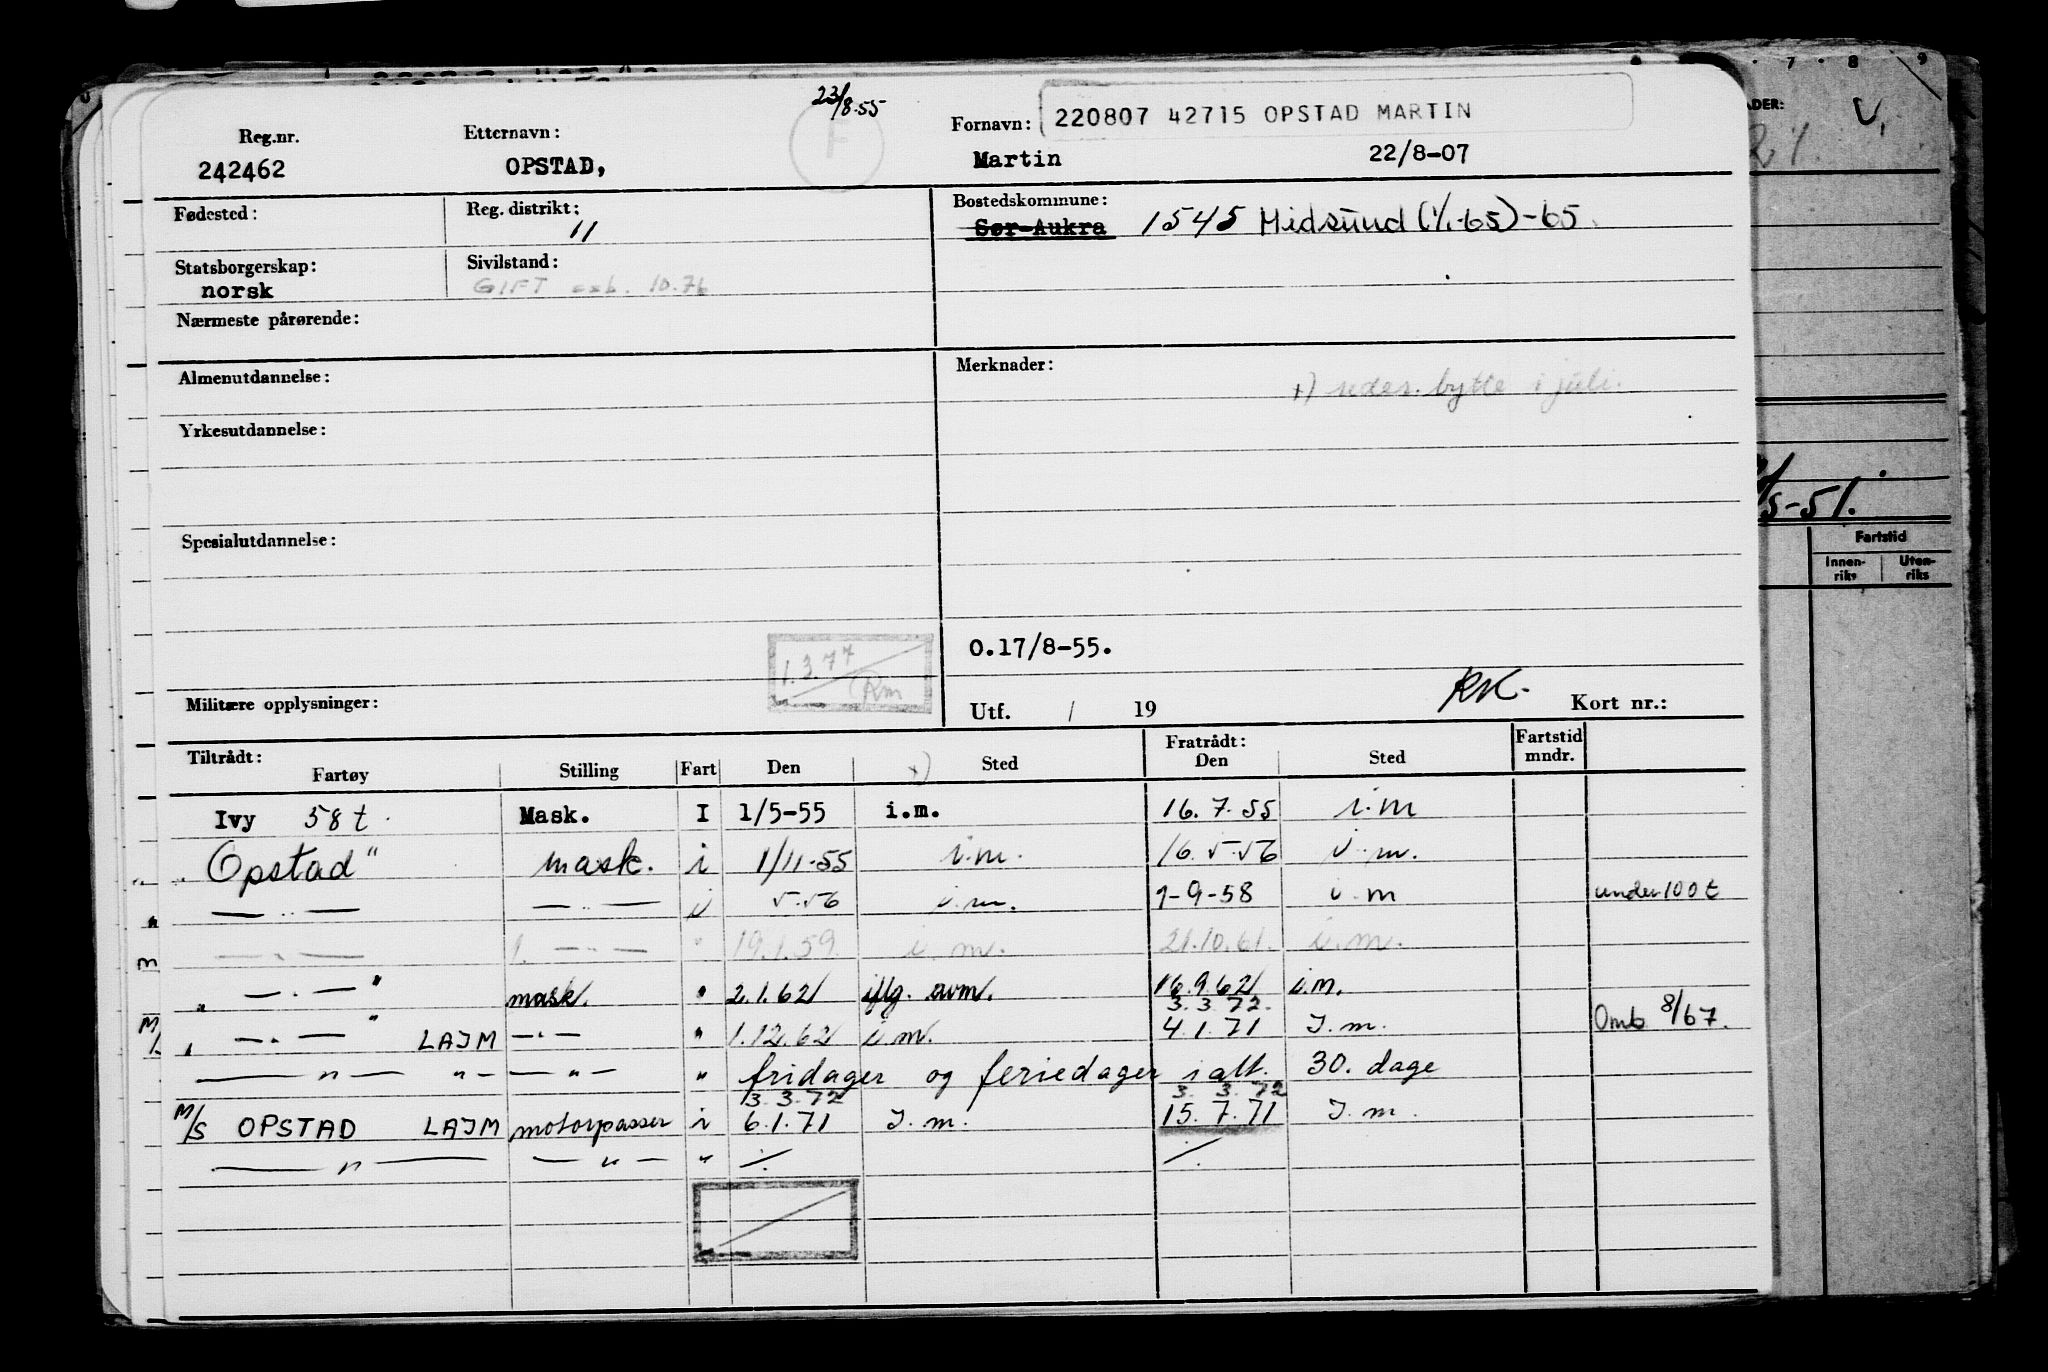 23/8-55
Reg.nr. Etternavn: Fornavn: 220807 42715 OPSTAD MARTIN
242462 OPSTAD, Martin 22/8-07
Fødested: Reg. distrikt: 11 Bostedskommune: Sør-Aukra 1545 Midsund (1/1-65)-65.
Statsborgerskap: norsk Sivilstand: GIFT 10.76
Nærmeste pårørende:
Almenutdannelse: Merknader: x) uden. bytte i juli.
Yrkesutdannelse:
Spesialutdannelse:
1.3.77 Rm
O.17/8-55.
Militære opplysninger: Utf. / 19 RK. Kort nr.:
Tiltrådt: Fratrådt: Fartstid mndr.
Fartøy Stilling Fart Den x) Sted Den Sted
Ivy 58 t. Mask. I 1/5-55 i.m. 16.7.55 i.m
"Opstad" mask. i 1/11-55 i.m. 16.5.56 i.m.
— " — — " — i 5.56 i.m. 1-9-58 i.m under 100 t
— " — 1. — " — " 19.1.59 i.m. 21.10.61. i.m.
" — " — " mask. " 2.1.62 iflg. avm. 16.9.62 i.m.
3.3.72.
M/ " — " — " LAJM — " — " 1.12.62 i.m. 4.1.71 I.m. Omb 8/67.
— " — " — — " — " fridager og feriedager i alt. 30. dage
3.3.72 3.3.72
M/S OPSTAD LAJM motorpasser i 6.1.71 I.m. 15.7.71 I.m.
— " — — " — " ./. ./.
7 8 9
ADER:
/5-51.
Fartstid
Innen-riks Uten-riks